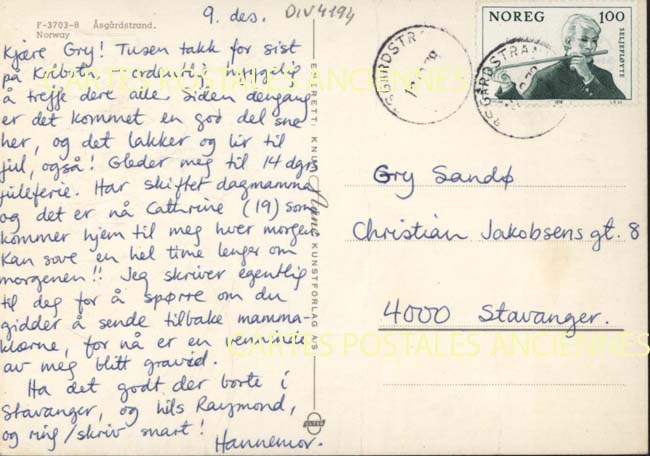 9. des.
DIV4194
F-3703-8 Åsgårdstrand.
Norway
Kjære Gry! Tusen takk for sist
på Kolbotn - ordentlig hyggelig
å treffe dere alle. Siden dengang
er det kommet en god del snø
her, og det lakker og lir til
jul, også! Gleder meg til 14 dgrs
juleferie. Har skiftet dagmamma
og det er nå Cathrine (19) som
kommer hjem til meg hver morgen.
Kan sove en hel time lenger om
morgenen!! Jeg skriver egentlig
til deg for å spørre om du
gidder å sende tilbake mamma-
klærne, for nå er en venninne
av meg blitt gravid.
Ha det godt der borte i
Stavanger, og hils Raymond,
og ring/skriv snart!
Hannemor.
ENERETT: KNUT Aune KUNSTFORLAG A/S
NOREG 100
SELJEFLØYTE
ÅSGÅRDSTRAND
ÅSGÅRDSTRAND
Gry Sandø
Christian Jakobsens gt. 8
4000 Stavanger.
CARTES POSTALES ANCIENNES
CARTES POSTALES ANCIENNES